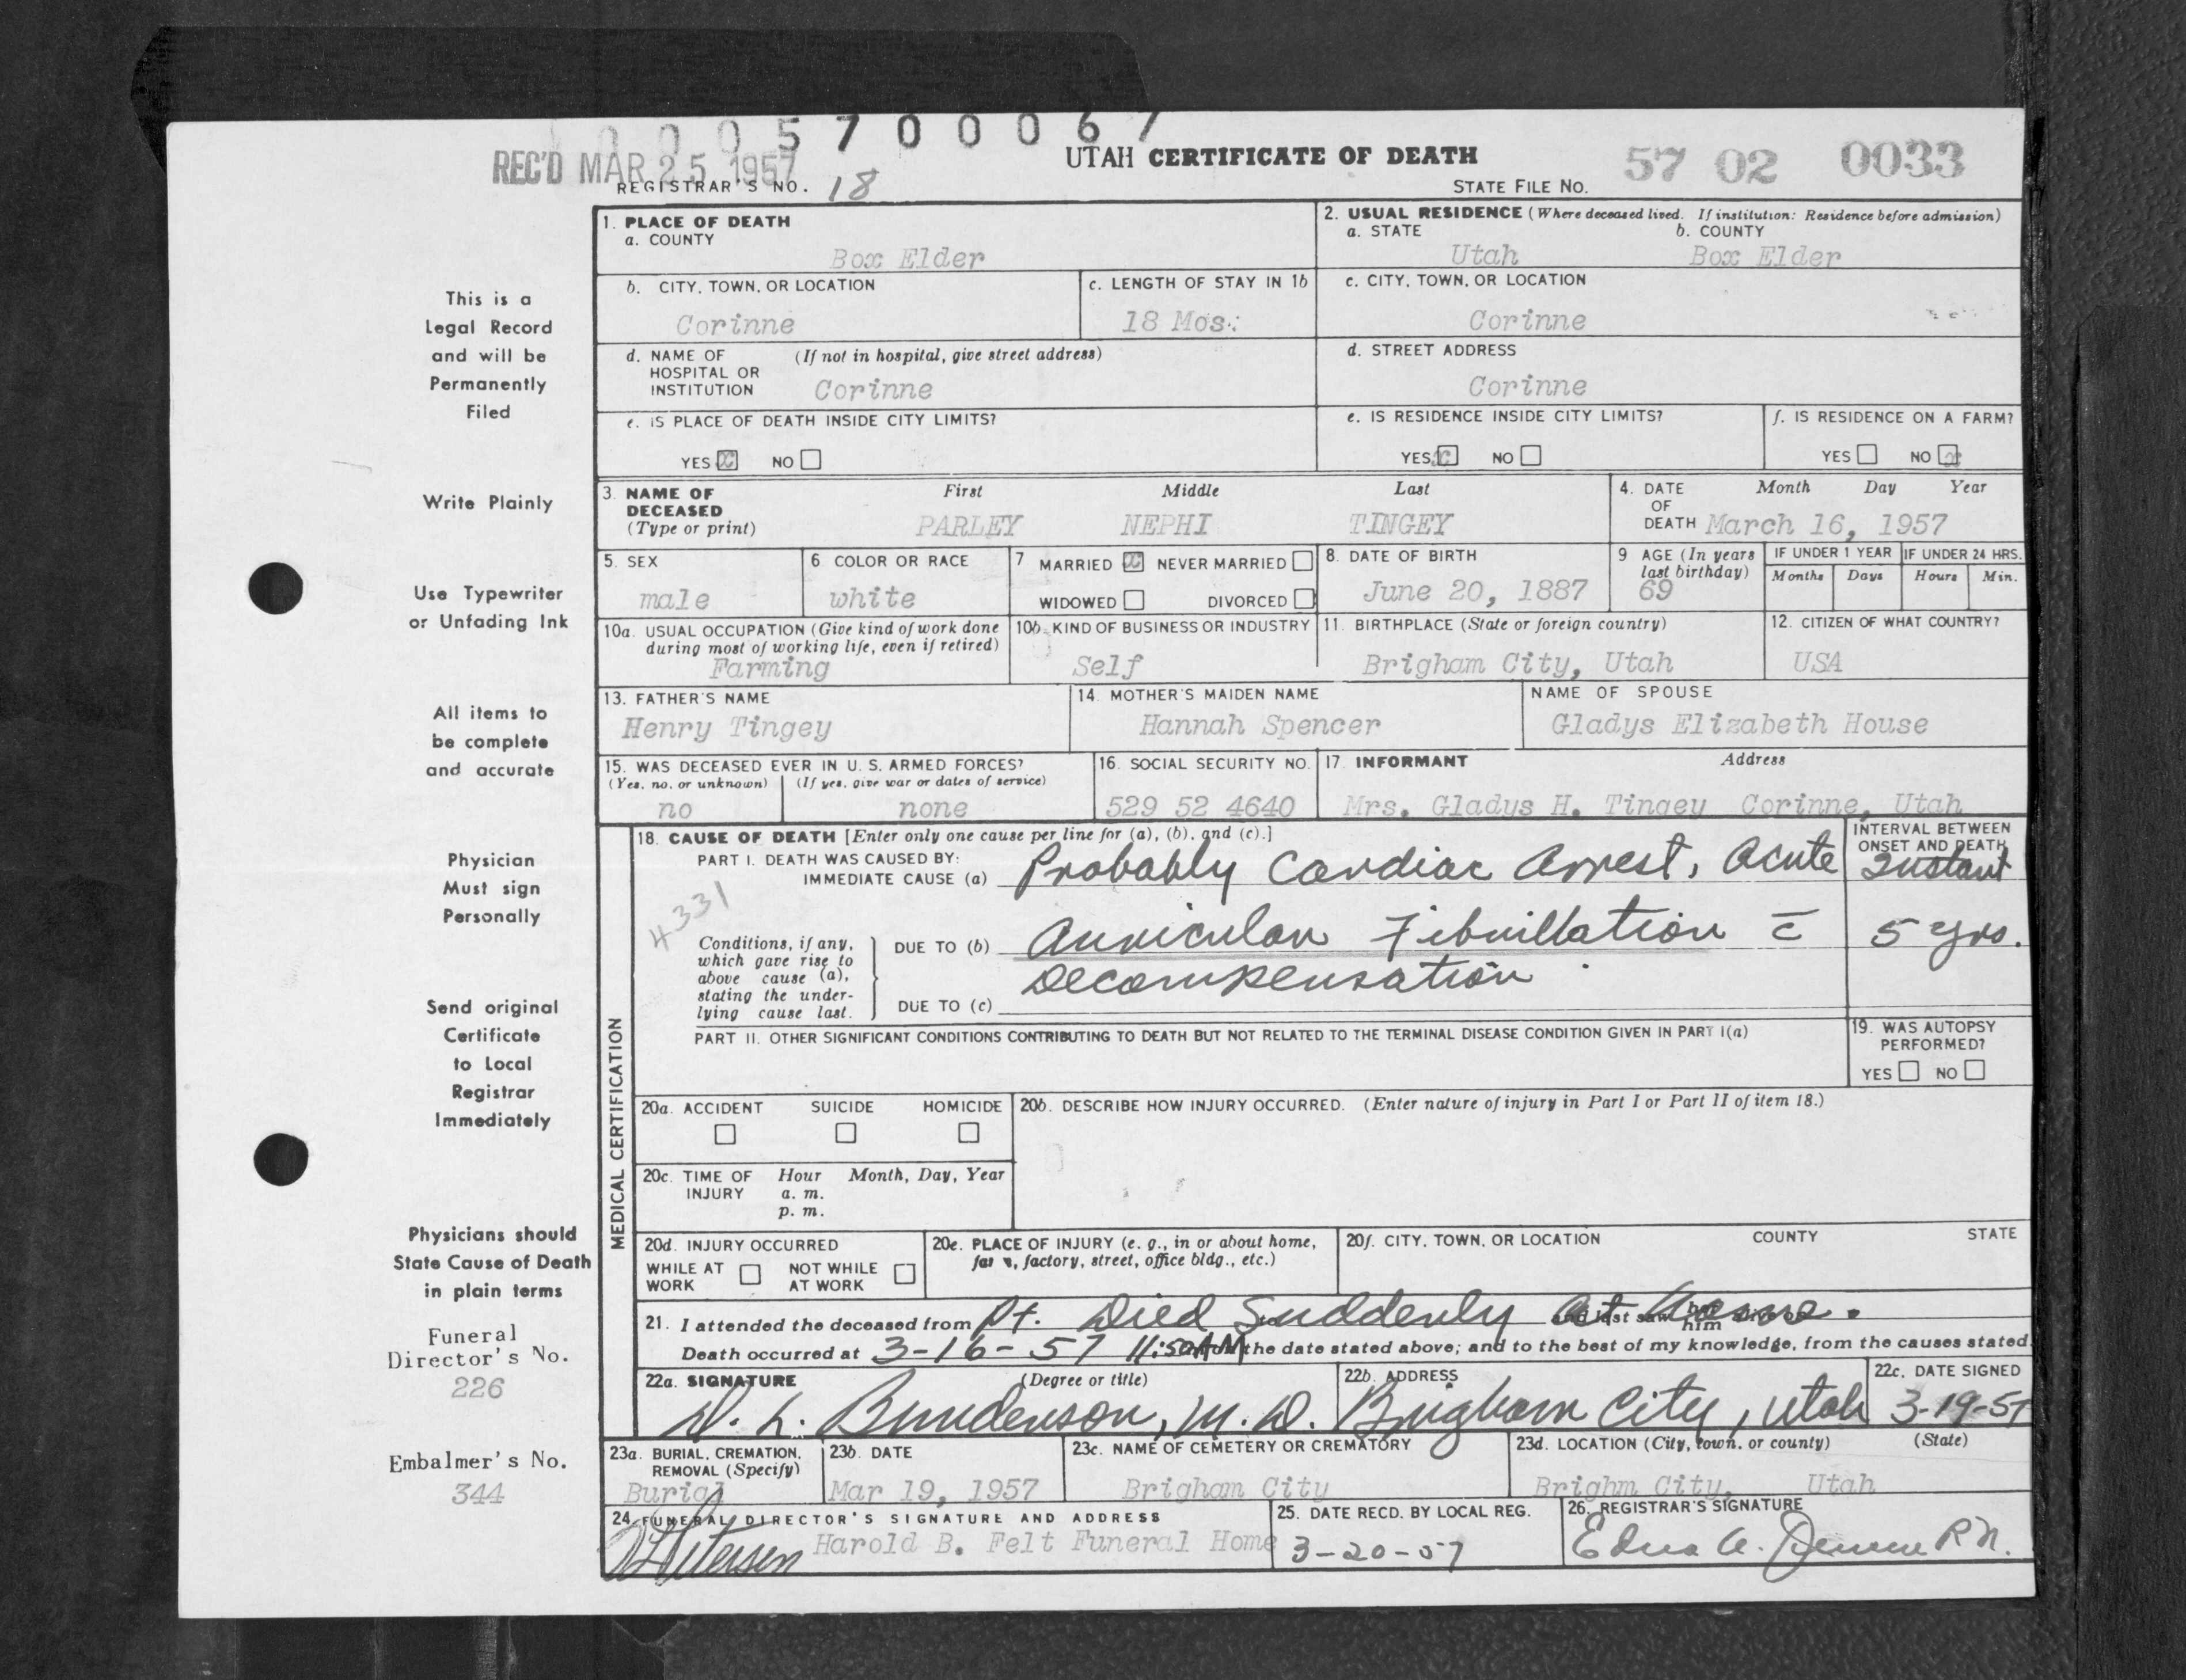 0 0 0 5 7 0 0 0 6 7
REC'D MAR 25 1957
UTAH CERTIFICATE OF DEATH
57 02 0033
REGISTRAR'S NO. 18
STATE FILE NO.
1. PLACE OF DEATH
a. COUNTY
Box Elder
2. USUAL RESIDENCE (Where deceased lived. If institution: Residence before admission)
a. STATE b. COUNTY
Utah Box Elder
b. CITY, TOWN, OR LOCATION
Corinne
c. LENGTH OF STAY IN 1b
18 Mos.
c. CITY, TOWN, OR LOCATION
Corinne
d. NAME OF (If not in hospital, give street address)
HOSPITAL OR
INSTITUTION Corinne
d. STREET ADDRESS
Corinne
e. IS PLACE OF DEATH INSIDE CITY LIMITS?
YES x NO
e. IS RESIDENCE INSIDE CITY LIMITS?
YES x NO
f. IS RESIDENCE ON A FARM?
YES NO x
3. NAME OF DECEASED
(Type or print)
First Middle Last
PARLEY NEPHI TINGEY
4. DATE OF DEATH
Month Day Year
March 16, 1957
5. SEX
male
6. COLOR OR RACE
white
7 MARRIED x NEVER MARRIED
WIDOWED DIVORCED
8. DATE OF BIRTH
June 20, 1887
9 AGE (In years
last birthday)
69
IF UNDER 1 YEAR
Months Days
IF UNDER 24 HRS.
Hours Min.
10a. USUAL OCCUPATION (Give kind of work done
during most of working life, even if retired)
Farming
10b. KIND OF BUSINESS OR INDUSTRY
Self
11. BIRTHPLACE (State or foreign country)
Brigham City, Utah
12. CITIZEN OF WHAT COUNTRY?
USA
13. FATHER'S NAME
Henry Tingey
14. MOTHER'S MAIDEN NAME
Hannah Spencer
NAME OF SPOUSE
Gladys Elizabeth House
15. WAS DECEASED EVER IN U. S. ARMED FORCES?
(Yes, no, or unknown) (If yes, give war or dates of service)
no none
16. SOCIAL SECURITY NO.
529 52 4640
17. INFORMANT Address
Mrs. Gladys H. Tingey Corinne, Utah
MEDICAL CERTIFICATION
18. CAUSE OF DEATH [Enter only one cause per line for (a), (b), and (c).]
PART I. DEATH WAS CAUSED BY:
IMMEDIATE CAUSE (a) Probably Cardiac Arrest, Acute
INTERVAL BETWEEN
ONSET AND DEATH
Instant
4331
Conditions, if any,
which gave rise to
above cause (a),
stating the under-
lying cause last.
DUE TO (b) Auricular Fibrillation c̄
5 yrs.
Decompensation
DUE TO (c)
PART II. OTHER SIGNIFICANT CONDITIONS CONTRIBUTING TO DEATH BUT NOT RELATED TO THE TERMINAL DISEASE CONDITION GIVEN IN PART I(a)
19. WAS AUTOPSY
PERFORMED?
YES NO
20a. ACCIDENT SUICIDE HOMICIDE
20b. DESCRIBE HOW INJURY OCCURRED. (Enter nature of injury in Part I or Part II of item 18.)
20c. TIME OF INJURY Hour Month, Day, Year
a. m.
p. m.
20d. INJURY OCCURRED
WHILE AT WORK NOT WHILE AT WORK
20e. PLACE OF INJURY (e. g., in or about home,
farm, factory, street, office bldg., etc.)
20f. CITY, TOWN, OR LOCATION COUNTY STATE
21. I attended the deceased from Pt. Died Suddenly at Home. and last saw her him
Death occurred at 3-16-57 11:50 AM the date stated above; and to the best of my knowledge, from the causes stated.
22a. SIGNATURE (Degree or title)
D. L. Bunderson, M.D.
22b. ADDRESS
Brigham City, Utah
22c. DATE SIGNED
3-19-57
23a. BURIAL, CREMATION,
REMOVAL (Specify)
Burial
23b. DATE
Mar 19, 1957
23c. NAME OF CEMETERY OR CREMATORY
Brigham City
23d. LOCATION (City, town, or county) (State)
Brighm City, Utah
24. FUNERAL DIRECTOR'S SIGNATURE AND ADDRESS
Petersen Harold B. Felt Funeral Home
25. DATE RECD. BY LOCAL REG.
3-20-57
26. REGISTRAR'S SIGNATURE
Edna R.N.
This is a
Legal Record
and will be
Permanently
Filed
Write Plainly
Use Typewriter
or Unfading Ink
All items to
be complete
and accurate
Physician
Must sign
Personally
Send original
Certificate
to Local
Registrar
Immediately
Physicians should
State Cause of Death
in plain terms
Funeral
Director's No.
226
Embalmer's No.
344